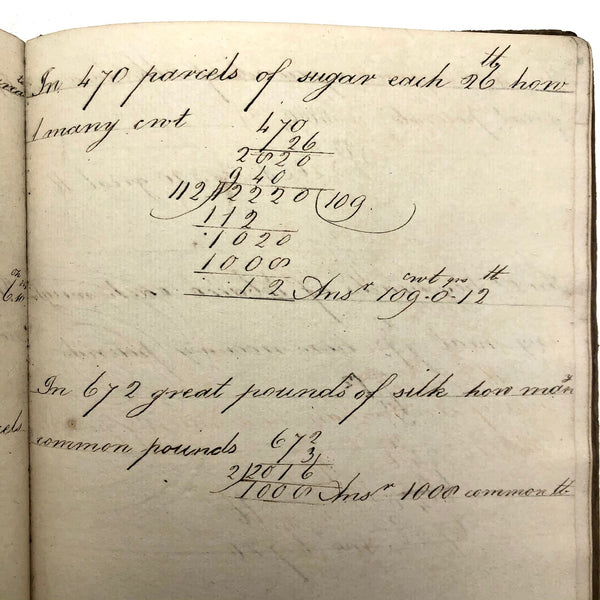 In 470 parcels of sugar each 26 lb how
many cwt
470
26
2820
940
112)12220(109
112
1020
1008
12
cwt qrs lb
Ansr 109.0.12
In 672 great pounds of silk how many
common pounds
672
3
2)2016
1008 Ansr 1008 common lb